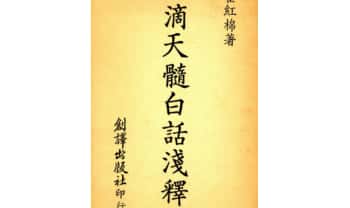 紅棉著
滴天髓白話淺釋
創譯出版社印行